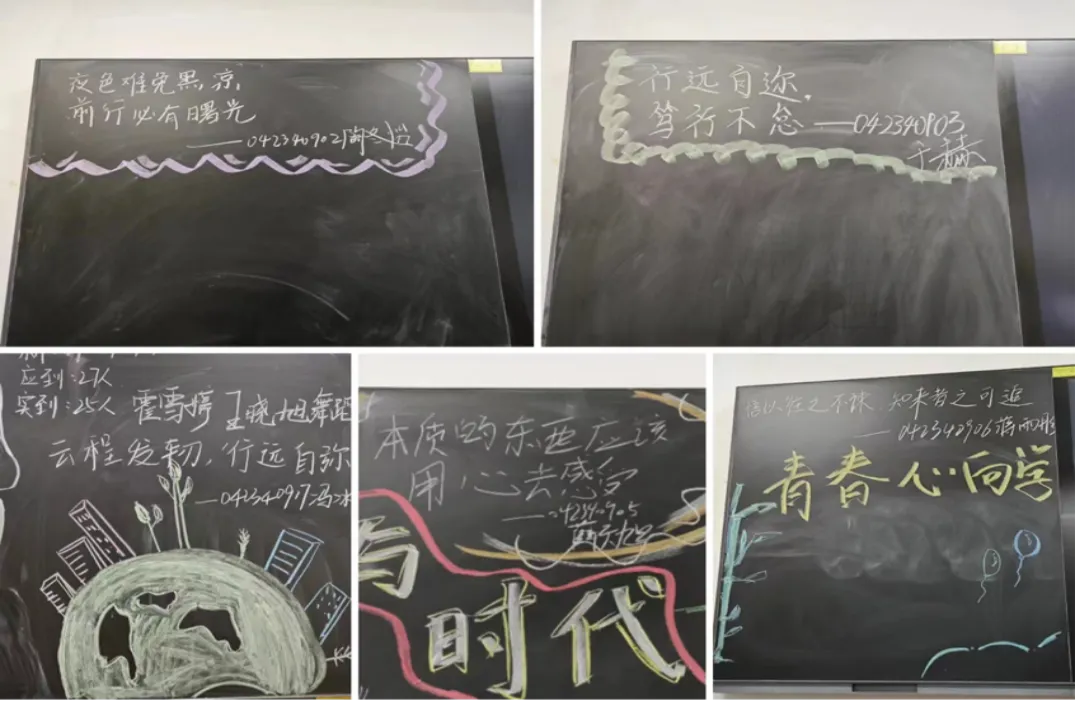 夜色难免黑凉,
前行必有曙光
——042340902
行远自迩,
笃行不怠——042340903
于赫
应到:27人
实到:25人
霍雪婷 王晓旭舞蹈
云程发轫,行远自弥
——042340917冯冰
本质的东西应该
用心去感受
——042340905
与
时代
悟以往之不谏,知来者之可追
——042340906蒋雨彤
青春心向学